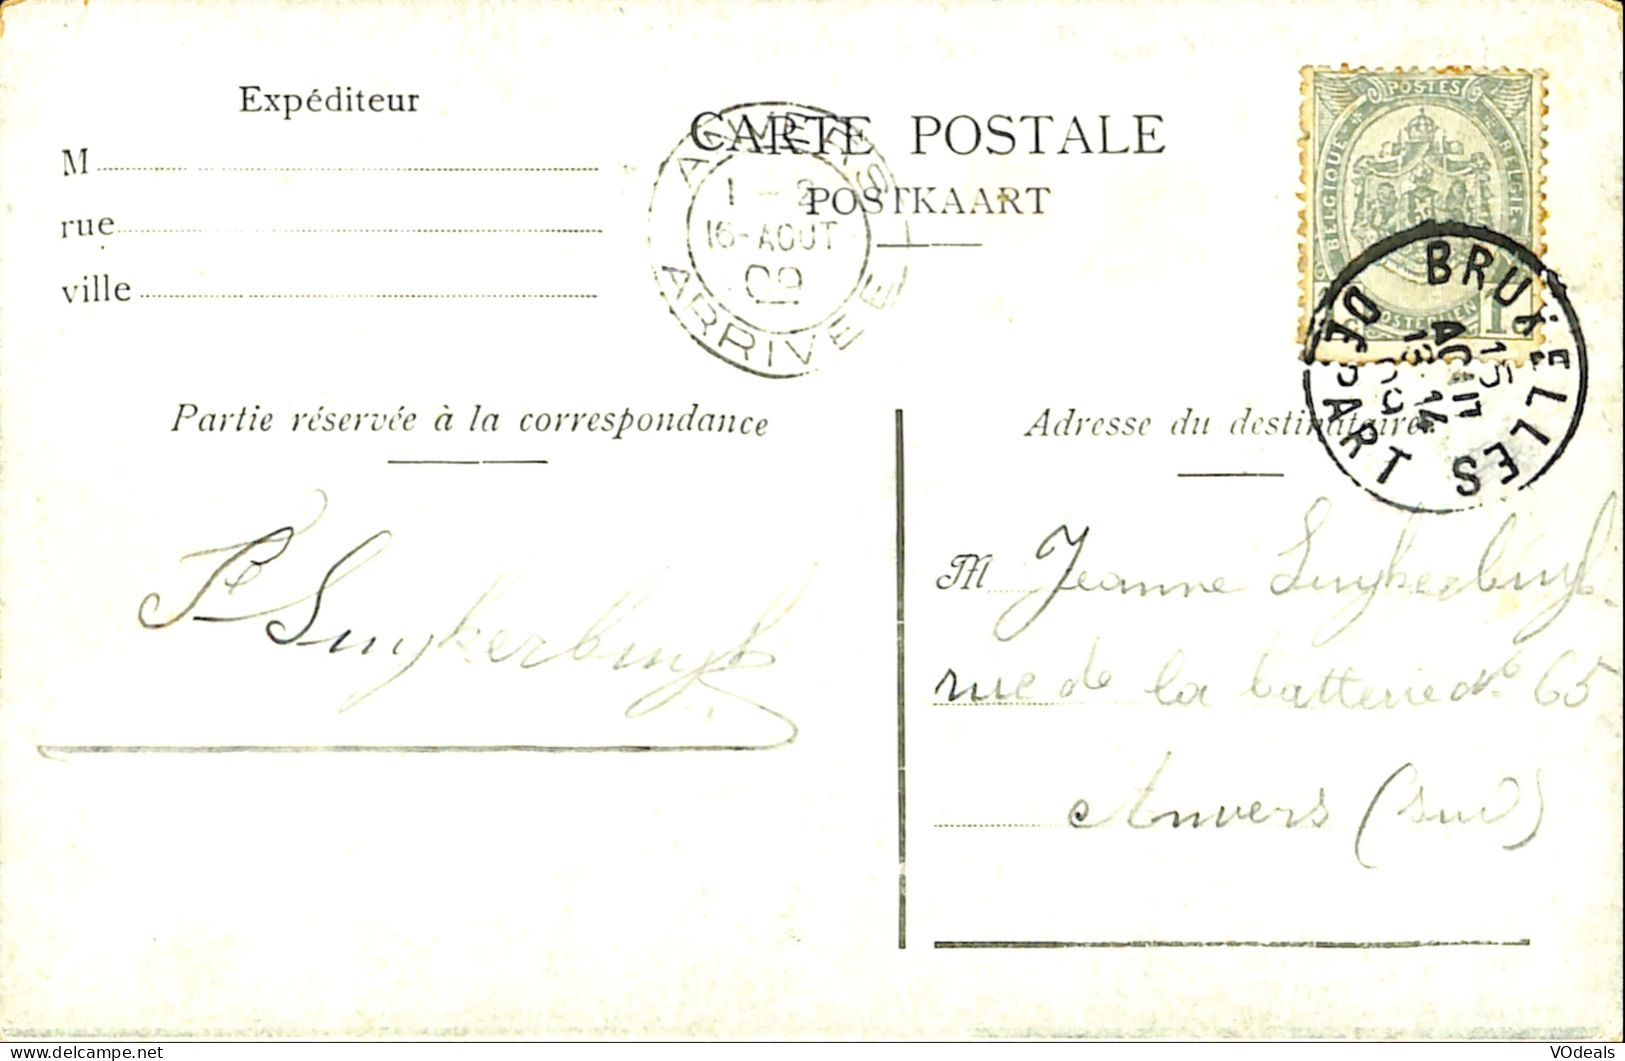 Expéditeur
M
rue
ville
CARTE POSTALE
POSTKAART
ANVERS
1 - 2
16 - AOUT
09
ARRIVEE
POSTES
BELGIQUE
BELGIE
POSTERIJEN
1
BRUXELLES
15
AOUT
13 14
09
DEPART
Partie réservée à la correspondance
Adresse du destinataire
Suykerbuyk
M Jeanne Suykerbuyk
rue de la batterie No 65
Anvers (sud)
VOdeals